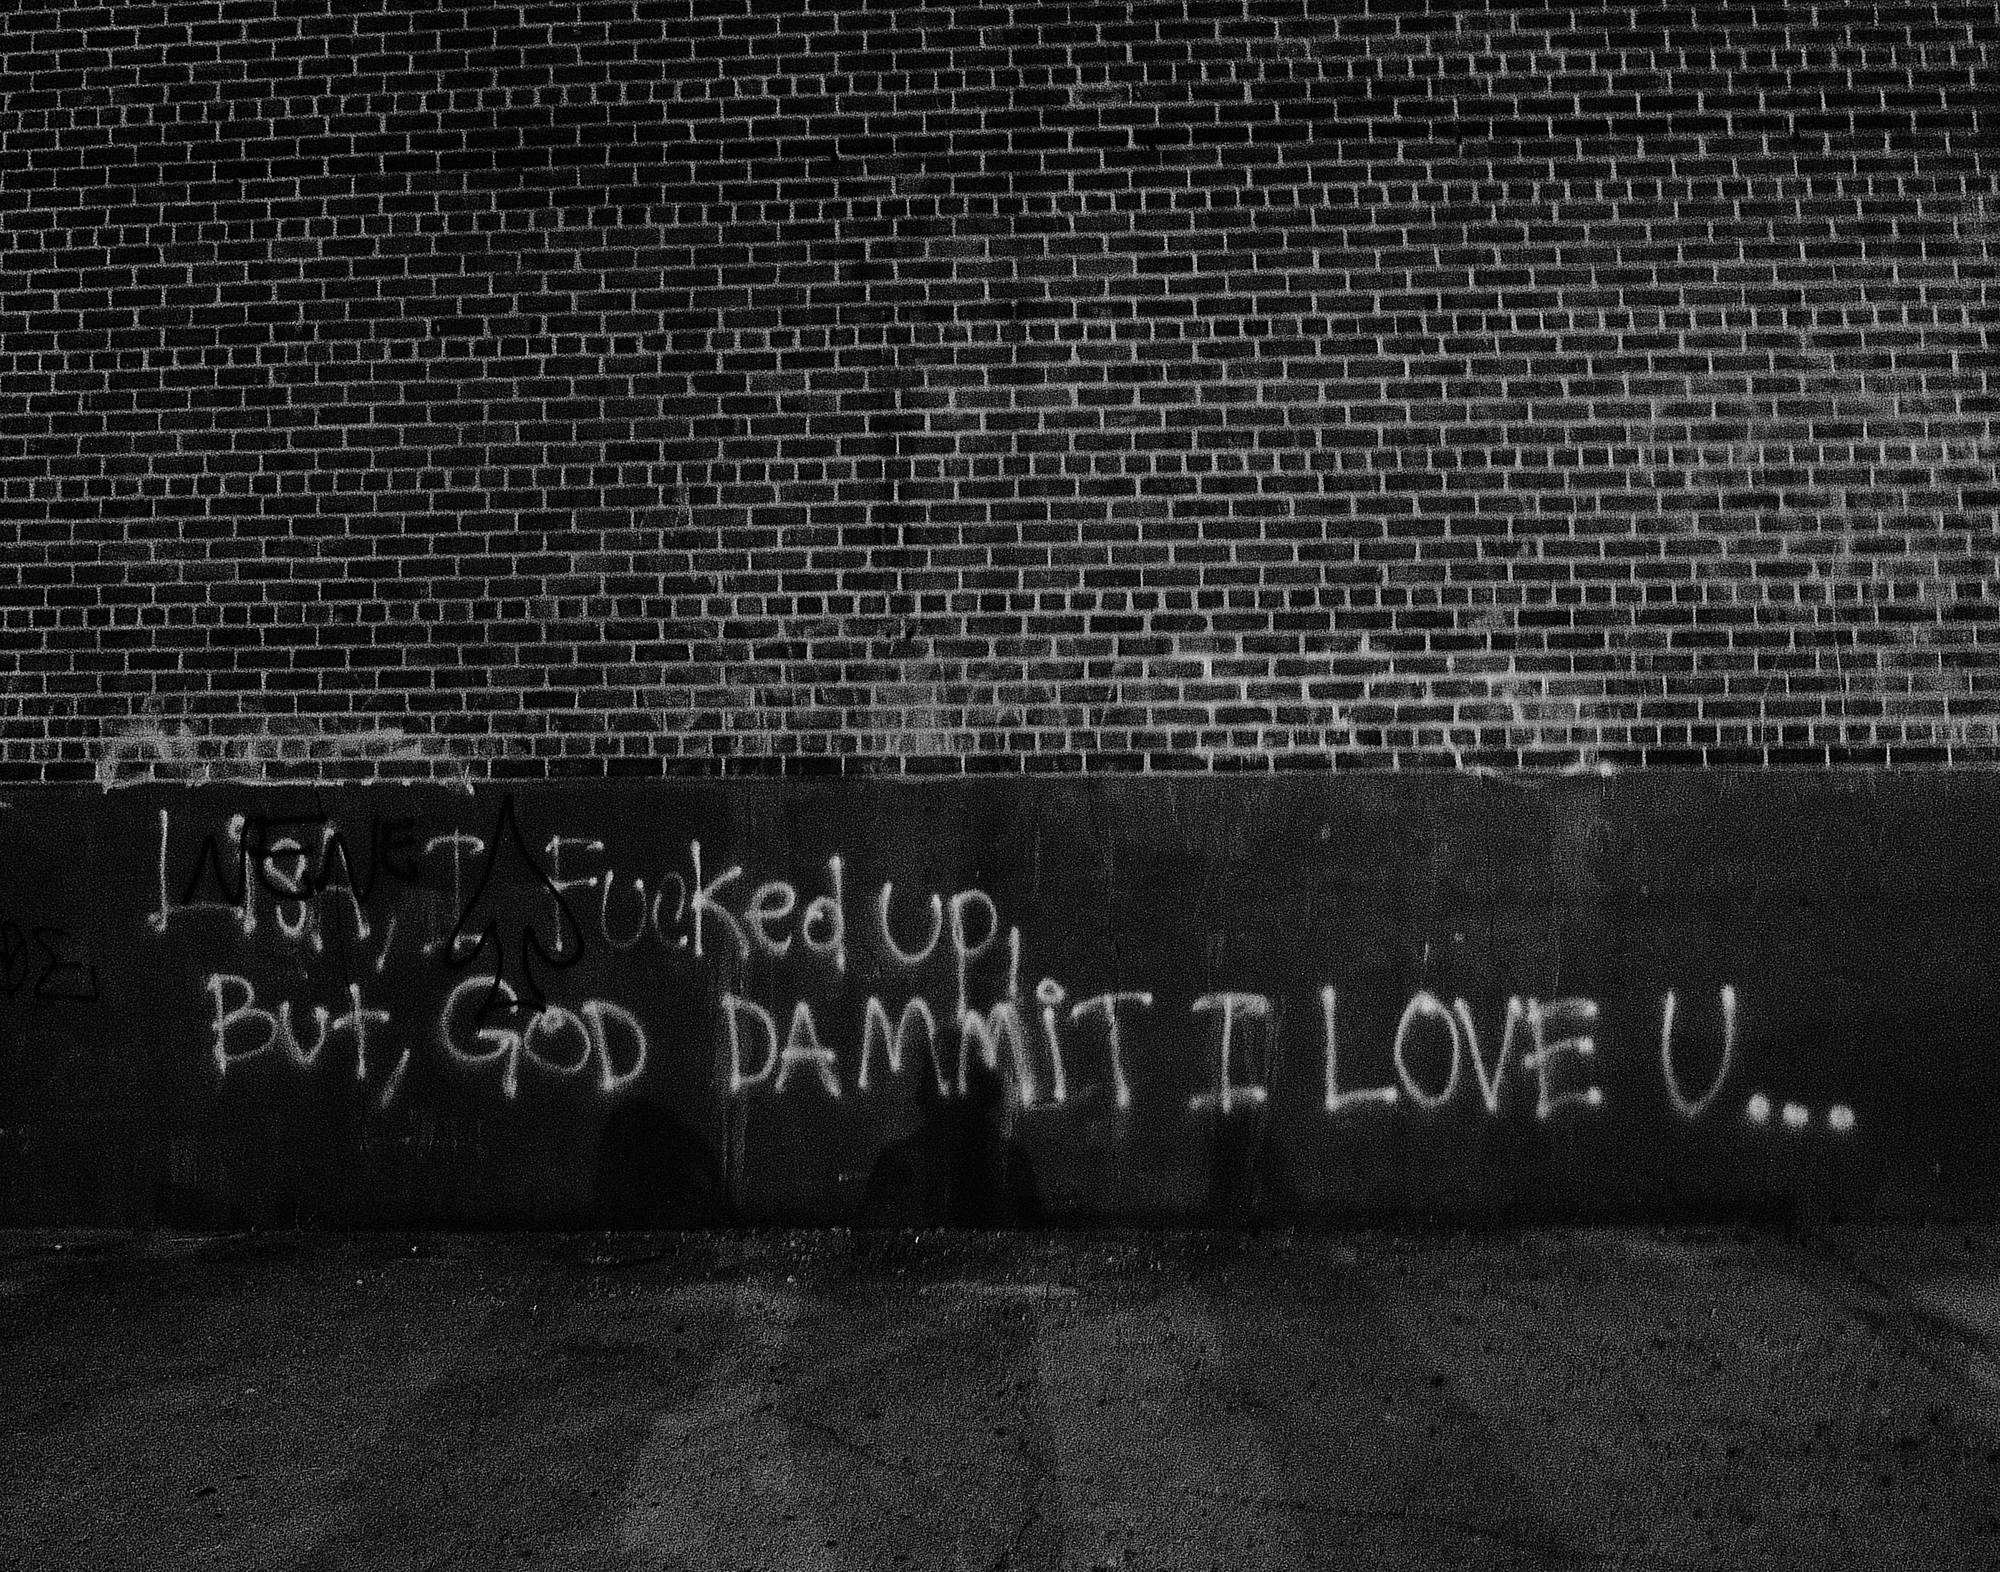 I Fucked up,
But, GOD DAMMiT I LOVE U...